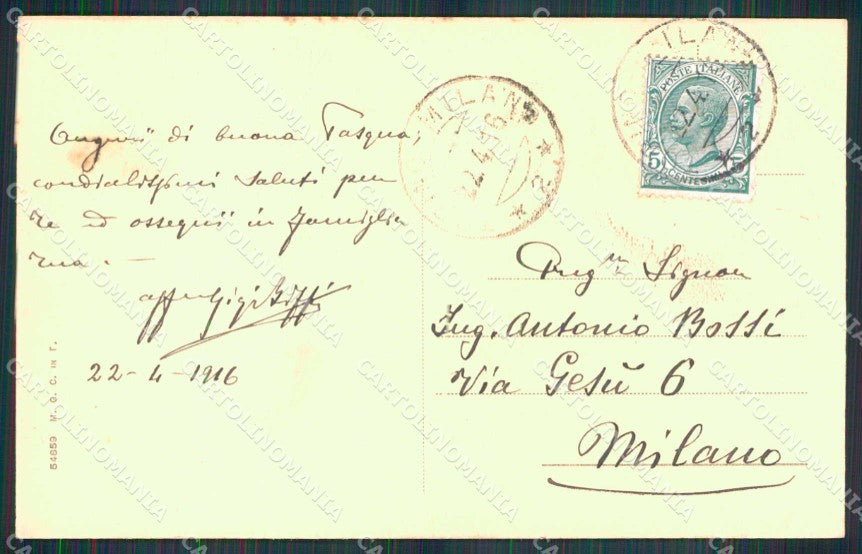 Auguri di buona Pasqua,
cordialissimi saluti per
te ed ossequi in famiglia
tua. —
aff Gigi Biffi
22-4-1916
54659 M. G. C. IN T.
MILANO
22.4.16
* 2 *
MILANO
22.4
2
POSTE ITALIANE
5 5
CENTESIMI
Preg mo Signor
Ing. Antonio Bossi
Via Gesù 6
Milano
CARTOLINOMANIA